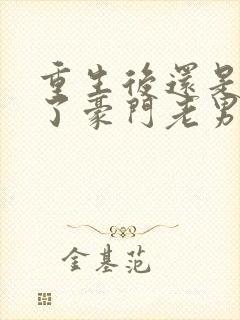 重生後還是
了豪門老男
金基范